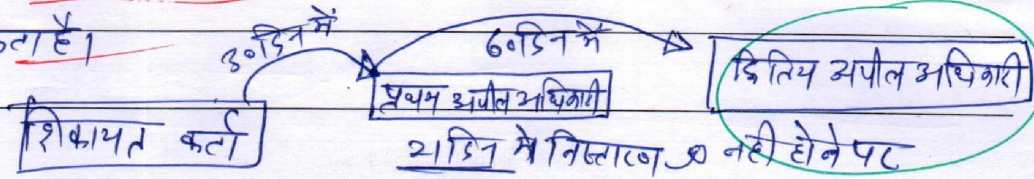 है।
30 दिन में
60 दिन में
द्वितिय अपील अधिकारी
प्रथम अपील अधिकारी
शिकायत कर्ता
21 दिन मे निस्तारण नही होने पर